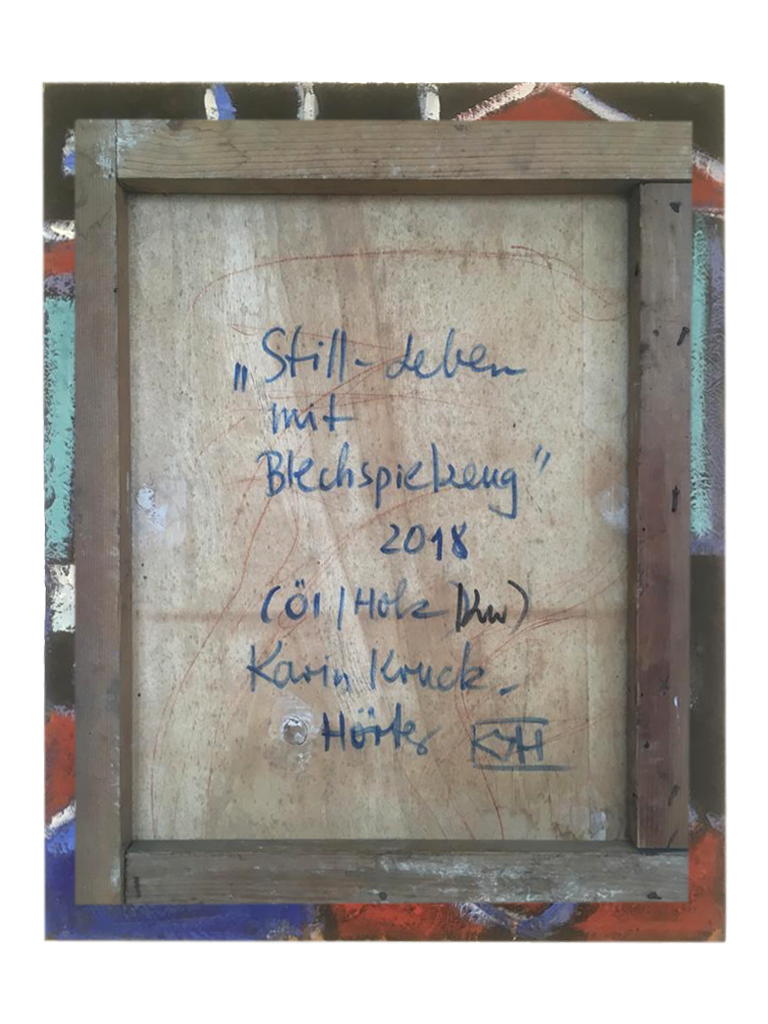 „Still-Leben
mit
Blechspielzeug"
2018
(Öl/Holz/Lw)
Karin Kruck-
Hörter KJH